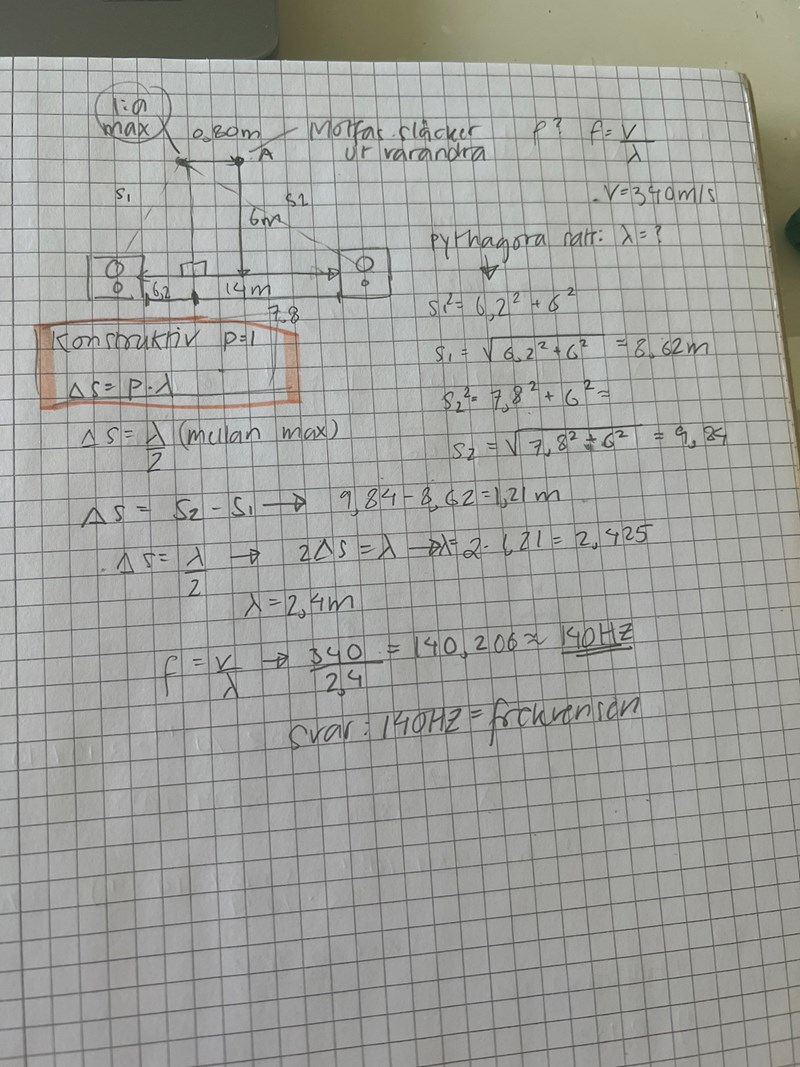 1:a
max
0,80m
A
Motfas släcker
ur varandra
f? f=v/λ
V=340m/s
S1
S2
6m
6,2
14m
7,8
Pythagora λ=?
S1²=6,2²+6²
S1=√6,2²+6² =8,62m
S2²=7,8²+6²=
S2=√7,8²+6² =9,84
Konstruktiv p=1
ΔS=p·λ
ΔS=λ/2 (mellan max)
ΔS= S2-S1 → 9,84-8,62=1,21m
ΔS=λ/2 → 2ΔS=λ →λ=2·1,21=2,425
λ=2,4m
f=v/λ → 340/2,4 =140,206≈ 140HZ
Svar: 140HZ=frekvensen